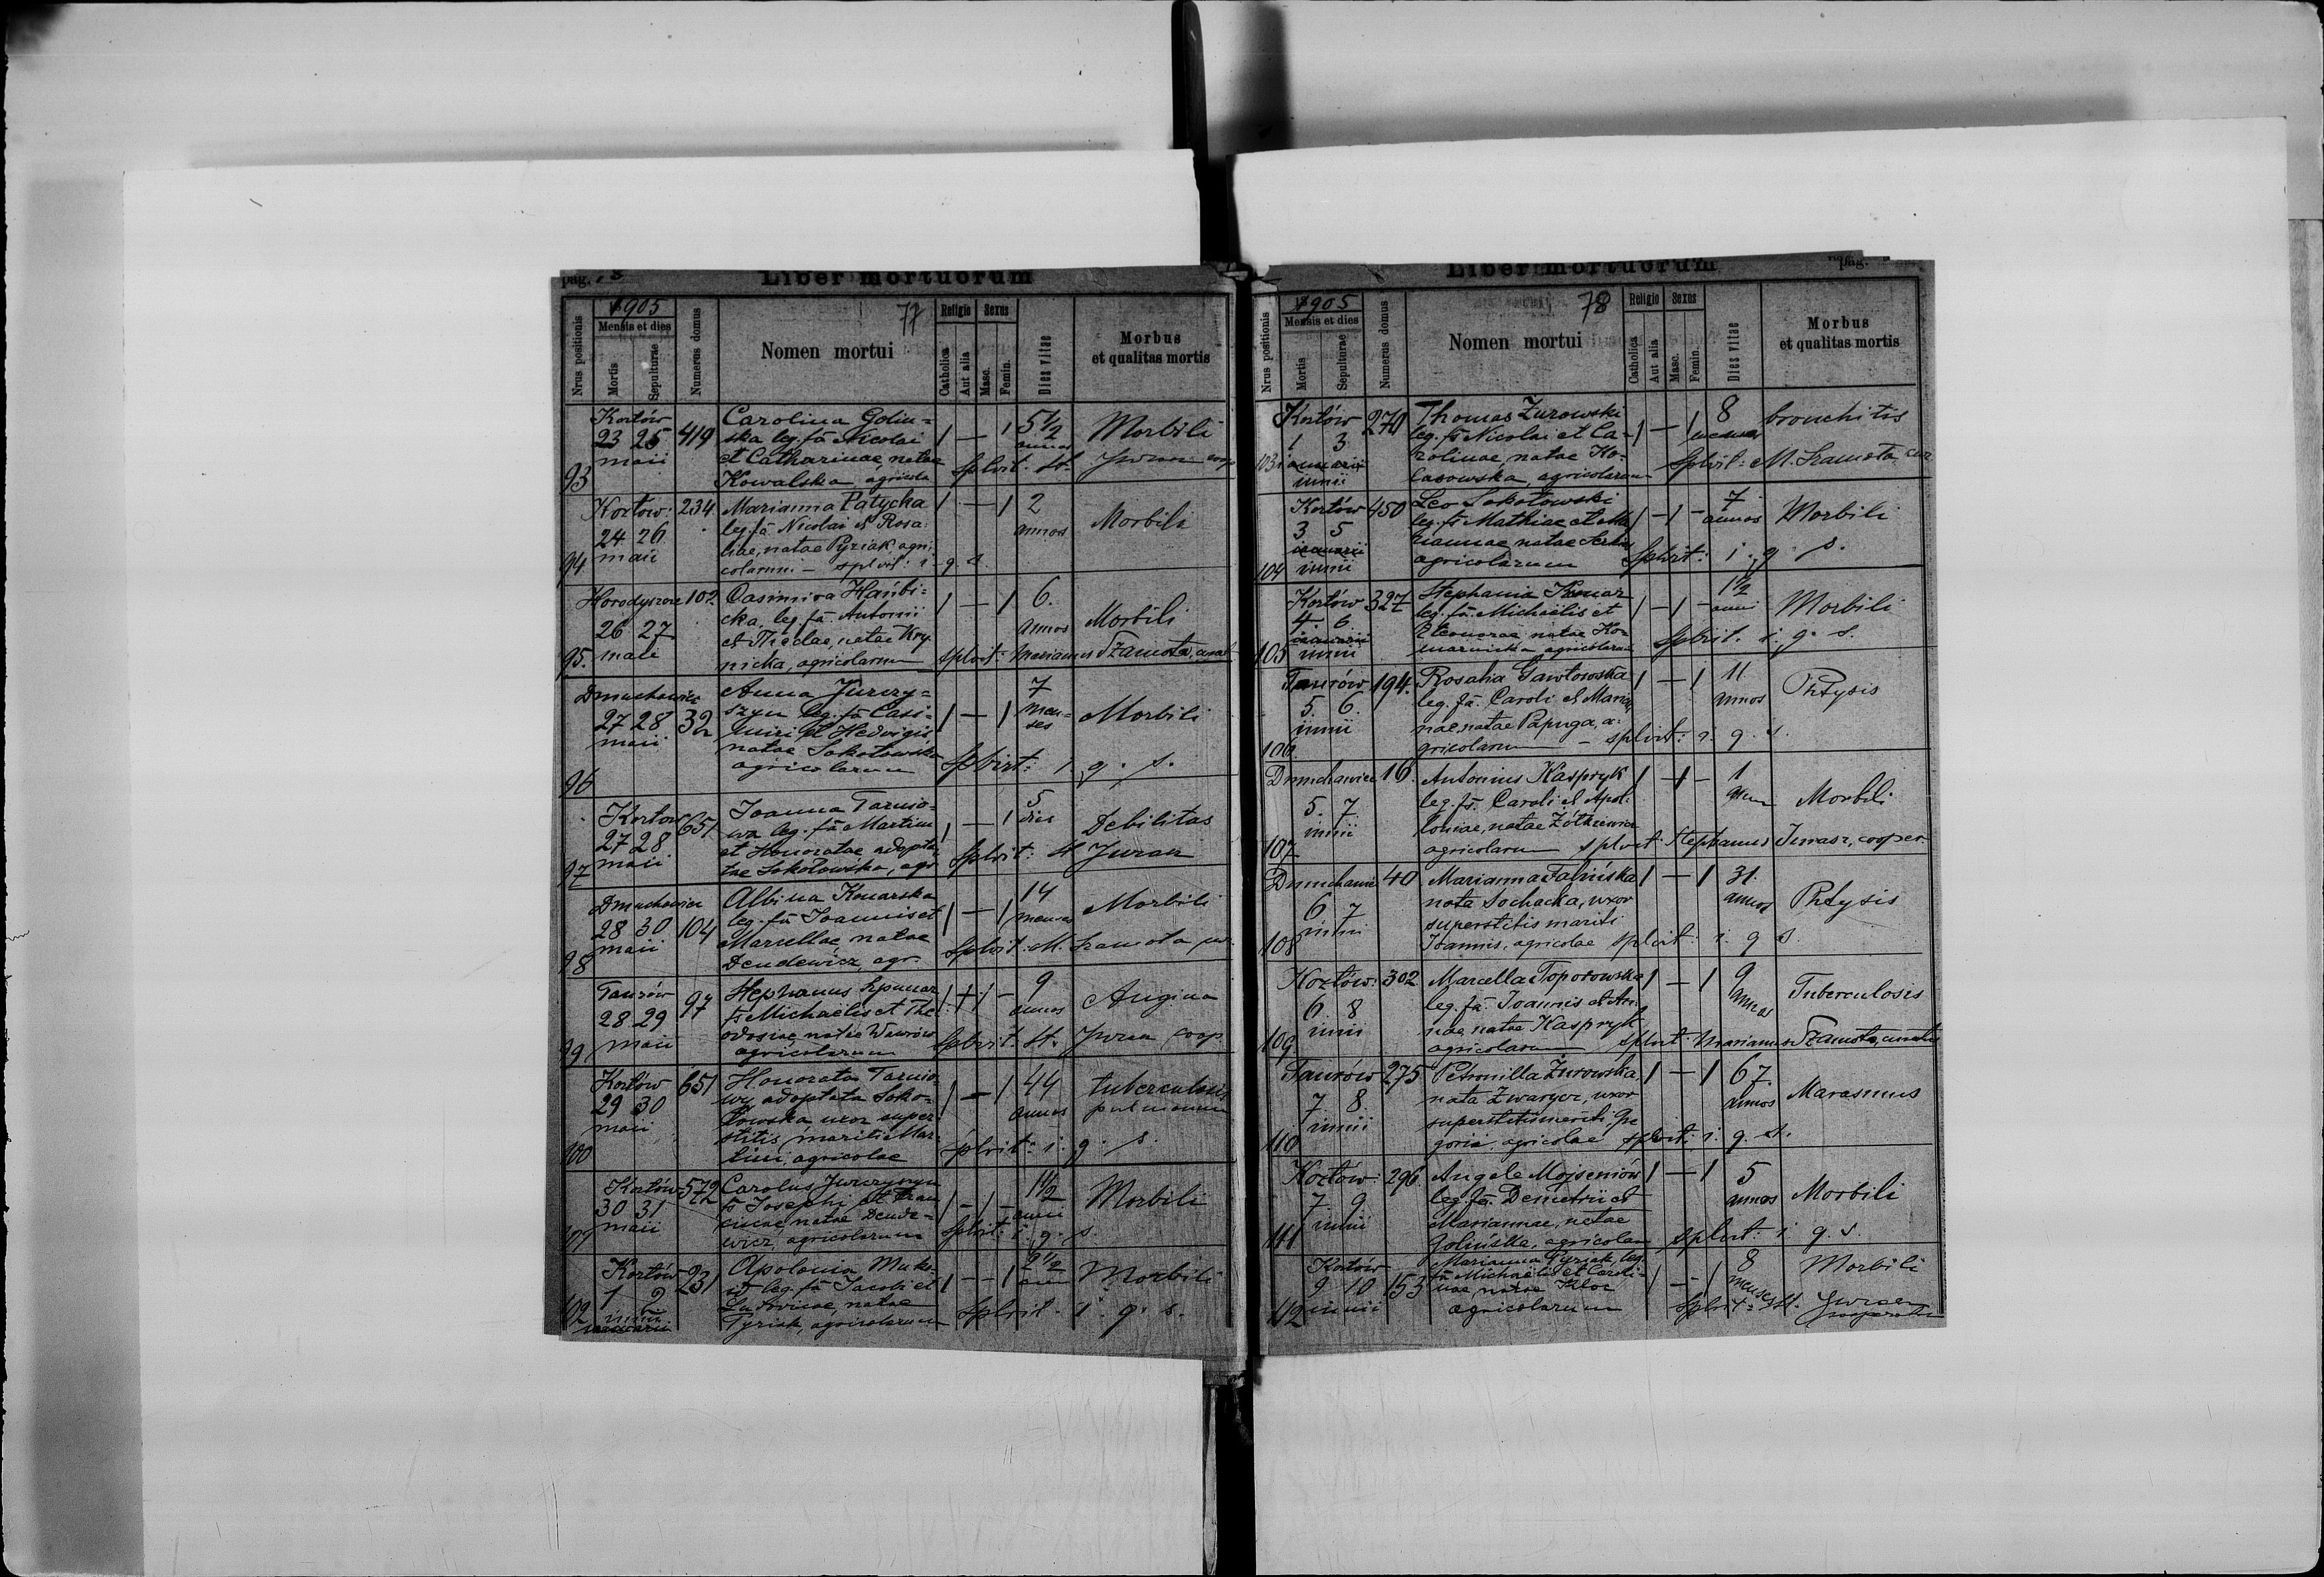 pag.
Liber mortuorum
1905
77
Nrus positionis
Mensis et dies
Mortis
Sepulturae
Numerus domus
Nomen mortui
Religio
Catholica
Aut alia
Sexus
Masc.
Femin.
Dies vitae
Morbus
et qualitas mortis
93
Kozłów 23 25 maii
419
Carolina Golin-
ska leg. fa Nicolai
et Catharinae, natae
Kowalska, agricola
1 — 1
5 1/2 annos
Morbili
Splvit: St. Juraz coop
94
Kozłow: 24 26 maii
234
Marianna Patycka
leg. fa Nicolai et Rosa-
liae, natae Pyziak, agri-
colarum — splvit: i. q. s.
1 — 1
2 annos
Morbili
95.
Horodyszcze 26 27 maii
102
Casimira Hańbi-
cka, leg. fa Antonii
et Theclae, natae Kry-
nicka, agricolarum
1 — 1
6. annos
Morbili
splvit: Marianus Szamota, curat
96
Dmuchawiec 27 28 maii
32
Anna Jurczy-
szyn leg. fa Casi-
miri et Hedvigis
natae Sokołowska
agricolarum
1 — 1
7 men-
ses
Morbili
Splvit: i. q. s.
97
Kozłow 27 28 maii
651
Joanna Tarnio-
wa leg. fa Martini
et Honoratae adopta-
tae Sokołowska, agr
1 — 1
5 dies
Debilitas
Splvit: St Juraz
98
Dmuchawiec 28 30 maii
104
Albina Konarska
leg. fa Joannis et
Marcellae, natae
Dendewicz, agr.
1 — 1
14 menses
Morbili
Splvit: M. Szamota
99
Taurów 28 29 maii
97
Stephanus
fs Michaëlis et The-
odosiae, natae
agricolarum
9 annos
Angina
Splvit. St. Juraz coop.
100
Kozłów 29 30 maii
651
Honorata Tarnio-
wy adoptata Soko-
łowska uxor super-
stitis mariti Mar-
tini, agricolae
1 — 1
44 annos
tuberculosis
pulmonum
splvit: i. q. s.
Kozłów 30 31 maii
572
Carolus Jurczyszyn
fs Josephi et Fran-
ciscae, natae Dende-
wicz, agricolarum
1 — 1 —
1 1/2 anni
Morbili
Splvit: i. q. s.
102
Kozłów 1 2 iunii
231
Apolonia
leg. fa Jacobi et
Ludovicae, natae
Pyziak, agricolarum
1 — 1
2 1/2
Morbili
Splvit: i. q. s.
Liber mortuorum
pag.
1905
78
Nrus positionis
Mensis et dies
Mortis
Sepulturae
Numerus domus
Nomen mortui
Religio
Catholica
Aut alia
Sexus
Masc.
Femin.
Dies vitae
Morbus
et qualitas mortis
103
Kozłów 1 3 iunii
270
Thomas Żurowski
leg. fs Nicolai et Ca-
rolinae, natae Ko-
lasowska, agricolarum
1 — 1
8 menses
bronchitis
Splvit: M. Szamota, cur
104
Kozłów 3 5 iunii
450
Leo Sokołowski
leg. fs Mathiae et Ma-
riannae natae
agricolarum
1 — 1 —
7 annos
Morbili
Splvit: i. q. s.
105
Kozłów 4. 6 iunii
327
Stephania
leg. fa Michaëlis et
Eleonorae, natae
agricolarum
1 — 1 —
1 1/2 anni
Morbili
Splvit. i. q. s.
106
Taurów 5 6. iunii
194.
Rosalia Gawłowska
leg. fa. Caroli et Marian-
nae, natae Papuga, a-
gricolarum — splvit: i. q. s.
1 — 1
11 annos
Phtysis
107
Dmuchawiec 5. 7. iunii
16.
Antonius Kaspryk
leg. fs. Caroli et Apol-
loniae, natae Żółkiewicz
agricolarum splvit Stephanus Juraz, cooper.
1 — 1 —
1
Morbili
108
Dmuchawiec 6 7 iunii
40
Marianna Falińska
nata Sochacka, uxor
superstitis mariti
Joannis, agricolae splvit: i. q. s.
1 — 1
31. annos
Phtysis
109
Kozłów: 6 8 iunii
302
Marcella Toporowska
leg. fa. Joannis et An-
nae, natae Kaspryk
agricolarum splvit: Marianus Szamota, curatus
1 — 1
9 annos
Tuberculosis
110
Taurów 7 8. iunii
275
Petronilla Żurowska,
nata Zwarycz, uxor
superstitis mariti Gre-
gorii, agricolae splvit: i. q. s.
1 — 1
67. annos
Marasmus
111
Kozłów: 7. 9 iunii
296.
Angela Mojseniów
leg. fa. Demetrii et
Mariannae, natae
Golińska, agricolarum splvit: i. q. s.
1 — 1
5 annos
Morbili
112
Kozłów 9 10 iunii
153
Marianna Pyziak leg.
fa Michaëlis et Caroli-
nae, natae Kloc
agricolarum
1 — 1
8 menses
Morbili
Splvit: St. Juraz
cooperator